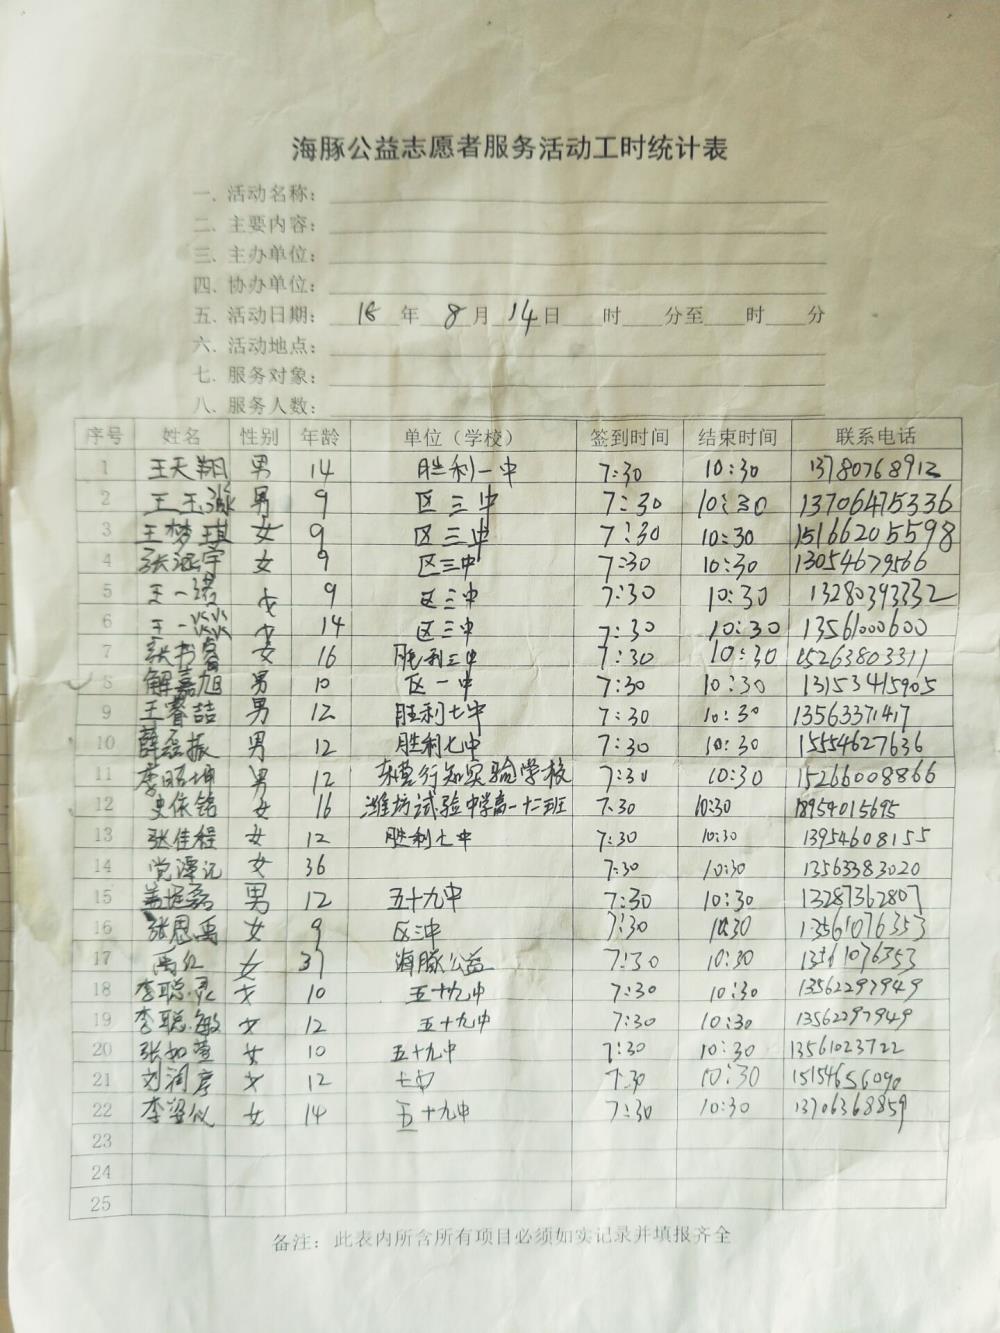 海豚公益志愿者服务活动工时统计表
一. 活动名称:
二. 主要内容:
三. 主办单位:
四. 协办单位:
五. 活动日期: 18 年 8 月 14 日 时 分至 时 分
六. 活动地点:
七. 服务对象:
八. 服务人数:
序号 姓名 性别 年龄 单位（学校） 签到时间 结束时间 联系电话
1 王天翔 男 14 胜利一中 7:30 10:30 13780768912
2 王玉 男 9 区三中 7:30 10:30 13706475336
3 王梦琪 女 9 区三中 7:30 10:30 15166205598
4 张涵宇 女 9 区三中 7:30 10:30 13054679566
5 王一诺 女 9 区三中 7:30 10:30 13280393332
6 王一 女 14 区三中 7:30 10:30 13561000600
7 张书睿 女 16 胜利三中 7:30 10:30 15263803311
8 解嘉旭 男 10 区一中 7:30 10:30 13153415905
9 王睿喆 男 12 胜利七中 7:30 10:30 13563371417
10 薛磊振 男 12 胜利七中 7:30 10:30 15554627636
11 李昭坤 男 12 东营行知实验学校 7:30 10:30 15266008866
12 史依铭 女 16 潍坊试验中学高一十二班 7:30 10:30 18954015695
13 张佳程 女 12 胜利七中 7:30 10:30 13954608155
14 党 女 36 7:30 10:30 13563383020
15 男 12 五十九中 7:30 10:30 13287362807
16 张恩禹 女 9 区三中 7:30 10:30 13561076353
17 禹红 女 37 海豚公益 7:30 10:30 13561076353
18 李聪灵 女 10 五十九中 7:30 10:30 13562297949
19 李聪敏 女 12 五十九中 7:30 10:30 13562297949
20 张如萱 女 10 五十九中 7:30 10:30 13561023722
21 刘润 女 12 七中 7:30 10:30 15154656090
22 李 女 14 五十九中 7:30 10:30 13706368859
23
24
25
备注: 此表内所含所有项目必须如实记录并填报齐全